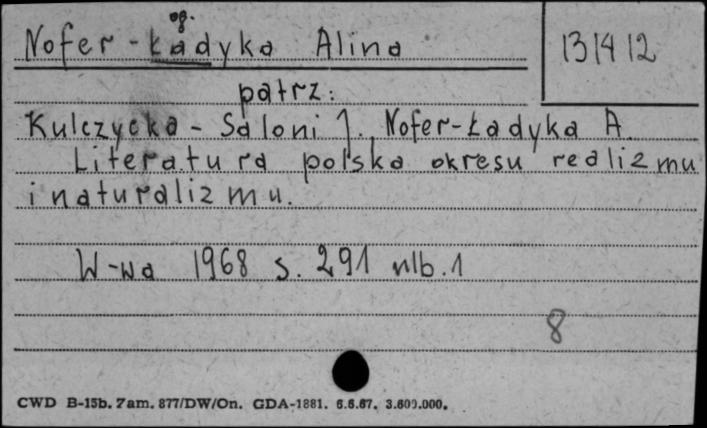 op.
Nofer-Ładyka Alina
131412
patrz:
Kulczycka-Saloni J. Nofer-Ładyka A.
Literatura polska okresu realizmu
i naturalizmu.
W-wa 1968 s. 291 nlb. 1
8
CWD B-15b. Zam. 877/DW/On. GDA-1881. 6.6.67. 3.600.000.